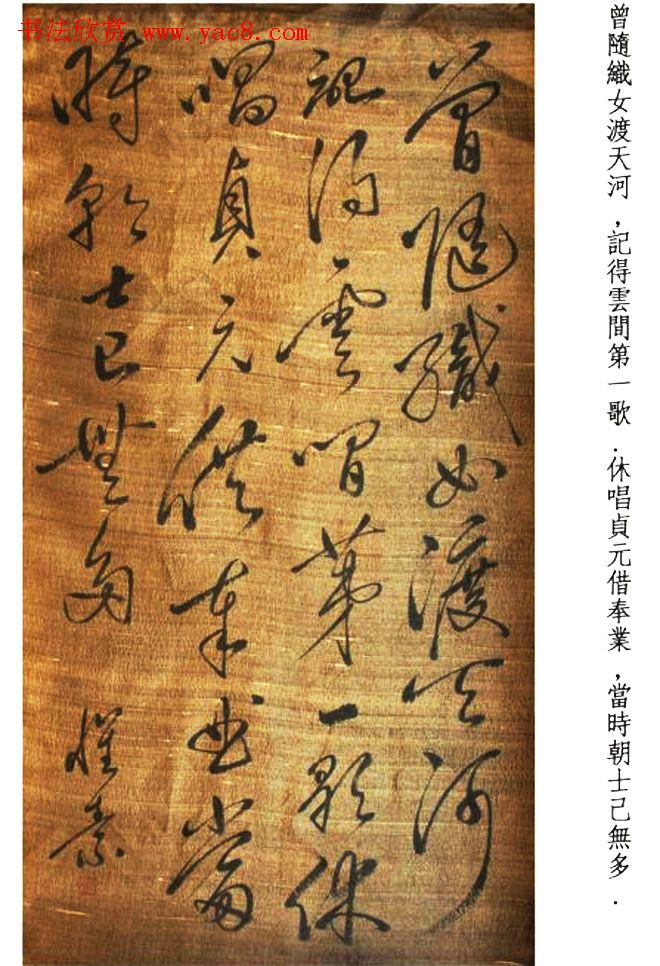 书法欣赏 www.yac8.com
曾隨織女渡天河
記得雲間第一歌休
唱貞元供奉曲當
時朝士已無多 懷素
曾隨織女渡天河，記得雲間第一歌．休唱貞元借奉業，當時朝士己無多．